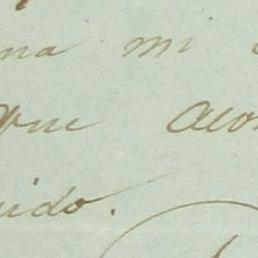 na mi
que acon
uido.